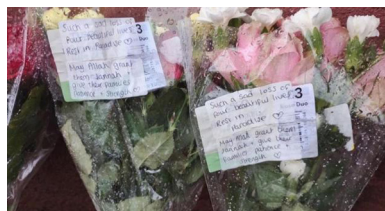 Such a sad loss of
four beautiful lives
Rest in Paradise ♡
May Allah grant
them Jannah
give their families
patience + strength
3
Such a sad loss of
four beautiful lives
Rest in
Paradise ♡
May Allah grant them
Jannah + give their
families patience +
strength ♡
3
Date